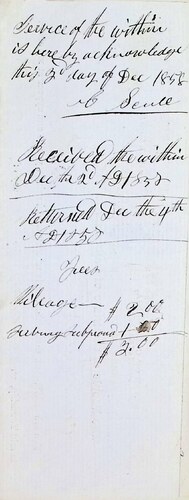 Service of the within
is here by acknowledge
this 3d day of Dec 1858
Received the within
Dec the 2d AD 1858
Returned Dec the 4th
AD 1858
Fees
Mileage $2.00
Serving Subpoena 1 00
$3.00